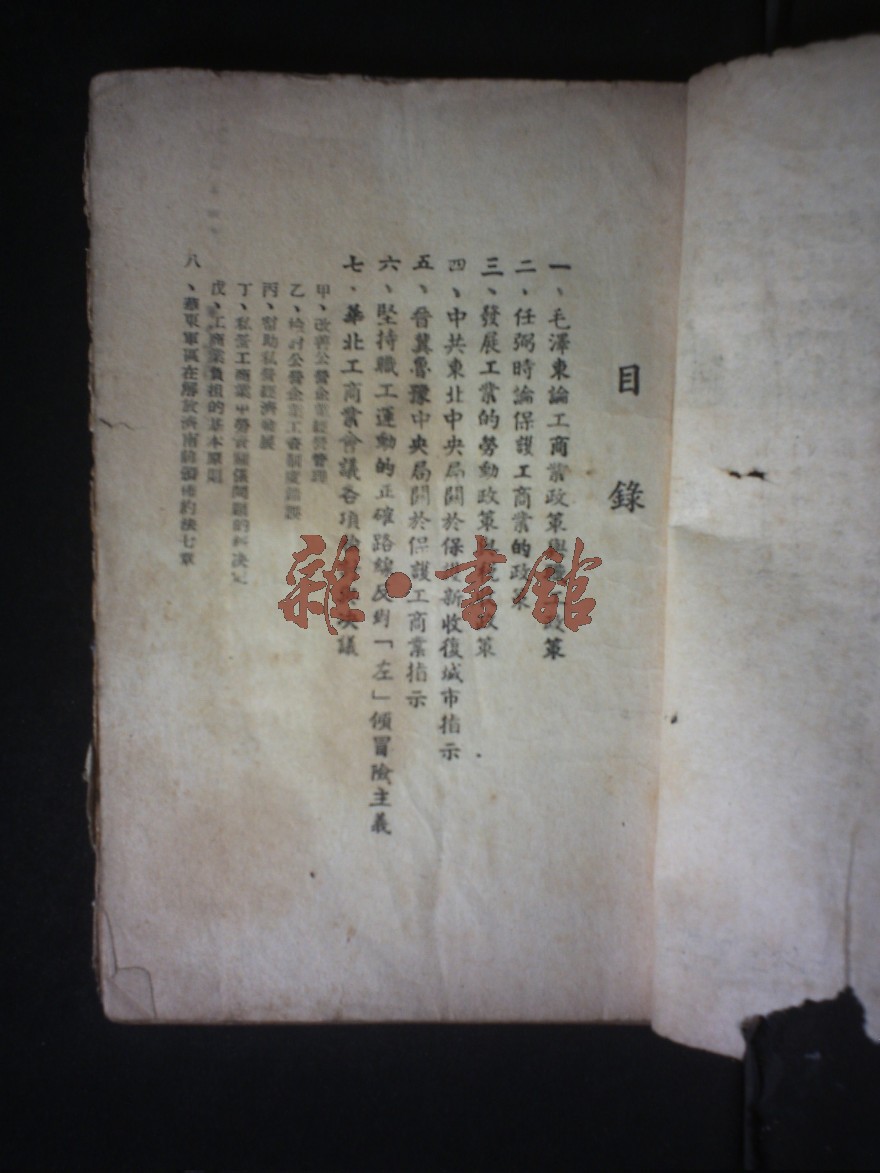 目錄
一、毛澤東論工商業政策與職工政策
二、任弼時論保護工商業的政策
三、發展工業的勞動政策與稅收政策
四、中共東北中央局關於保護新收復城市指示
五、晉冀魯豫中央局關於保護工商業指示
六、堅持職工運動的正確路線反對「左」傾冒險主義
七、華北工商業會議各項決議
甲、改善公營企業經營管理
乙、檢討公營企業工資制度錯誤
丙、幫助私營經濟發展
丁、私營工商業中勞資關係問題的決定
戊、工商業負担的基本原則
八、華東軍區在解放濟南前頒佈約法七章
雜·書館